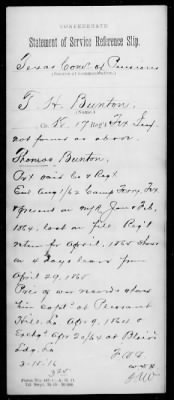 CONFEDERATE
Statement of Service Reference Slip.
Texas Com'r of Pensions
(Source of communication.)
T. H. Bunton,
(Name.)
Co. K. 17 Reg't Tex Inf
not found as above.
Thomas Bunton,
Pvt said Co & Regt
Enl Aug 1/62 Camp Terry, Tex
& present on m/r Jan & Feb,
1864, last on file. Reg'l
return for April, 1865 shows
on 4 days leave from
April 29, 1865
Pris of war records show
him capt'd at Pleasant
Hill, La Apr 9, 1864 &
Exch'd Apr 20/64 at Blair's
Ldg. La
3-15-16